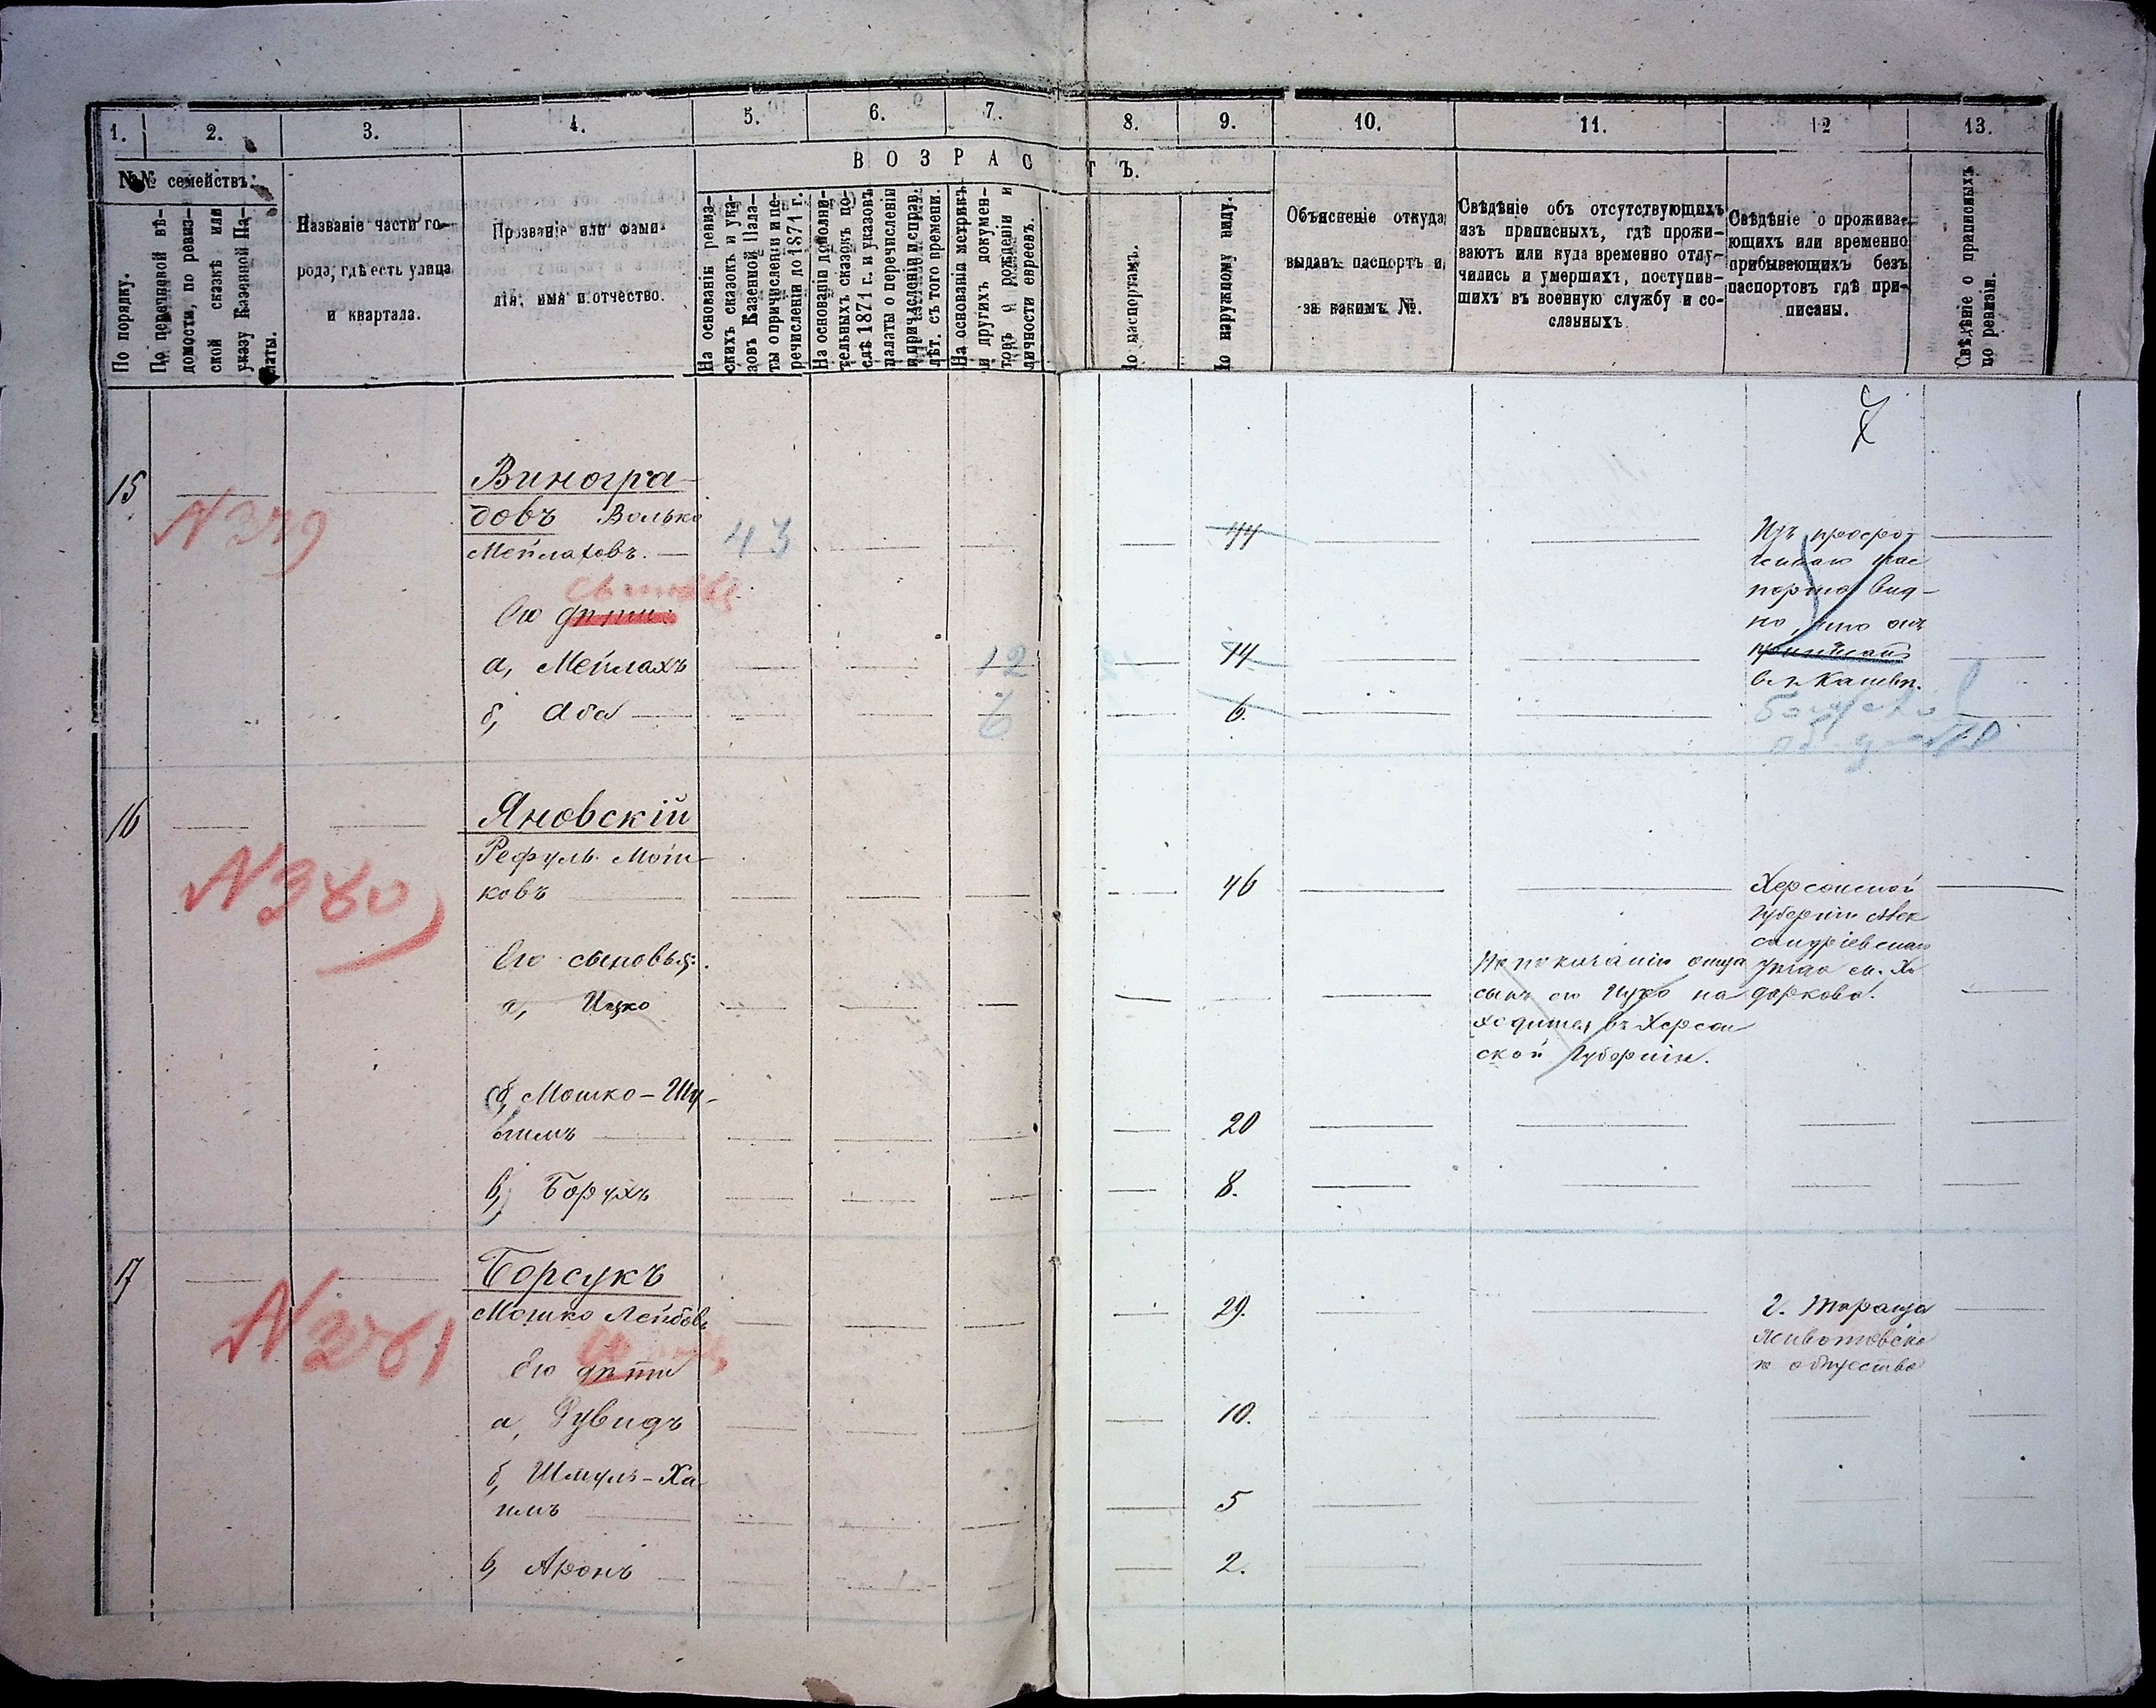 1. 2. 3. 4. 5. 6. 7. 8. 9. 10. 11. 12 13.
ВОЗРАСТЪ.
№№ семействъ:
По порядку.
По перечневой вѣ-
домости, по ревиз-
ской сказкѣ или
указу Казенной Па-
латы.
Названіе части го-
рода, гдѣ есть улица
и квартала.
Прозваніе или фами-
лія, имя и отчество.
На основаніи ревиз-
скихъ сказокъ и ука-
зовъ Казенной Пала-
ты о причисленіи и пе-
речисленіи до 1871 г.
На основаніи дополни-
тельныхъ сказокъ по-
слѣ 1871 г. и указовъ
палаты о перечисленіи
и причисленіи и справ.
лѣт. съ того времени.
На основаніи метрикъ
и другихъ докумен-
товъ о рожденіи и
личности евреевъ.
По паспортамъ.
По наружному виду.
Объясненіе откуда
выданъ паспортъ и
за какимъ №.
Свѣдѣніе объ отсутствующихъ
изъ приписныхъ, гдѣ прожи-
ваютъ или куда временно отлу-
чились и умершихъ, поступив-
шихъ въ военную службу и со-
сланныхъ
Свѣдѣніе о прожива-
ющихъ или временно
прибывающихъ безъ
паспортовъ гдѣ при-
писаны.
Свѣдѣніе о приписныхъ
по ревизіи.
7
15
N 379
Виногра-
довъ Волько
Мейлаховъ. 43 44
Изъ просро-
ченнаго пас
порта вид-
но, что онъ
сыновья
Его дѣти:
а, Мейлахъ 12 14
приписанъ
в. г. Каневѣ.
б, Аба 6 6.
16
N 380
Яновскій
Рефуль Мош-
ковъ 46
Херсонской
Губерніи Алек
сандріевскаго
Его сыновья:
а, Ицко
По показанію отца
сынъ его Ицко на
ходится въ Херсон
ской Губерніи.
б, Мошко-Шу-
лимъ 20
в, Борухъ 8.
17
N 381
Борсукъ
Мошко Лейбовъ 29.
г. Тараща
Животовско
е общество
Его дѣти
а, Рувидъ 10.
б, Шмуль-Ха
имъ 5
в, Аронъ 2.